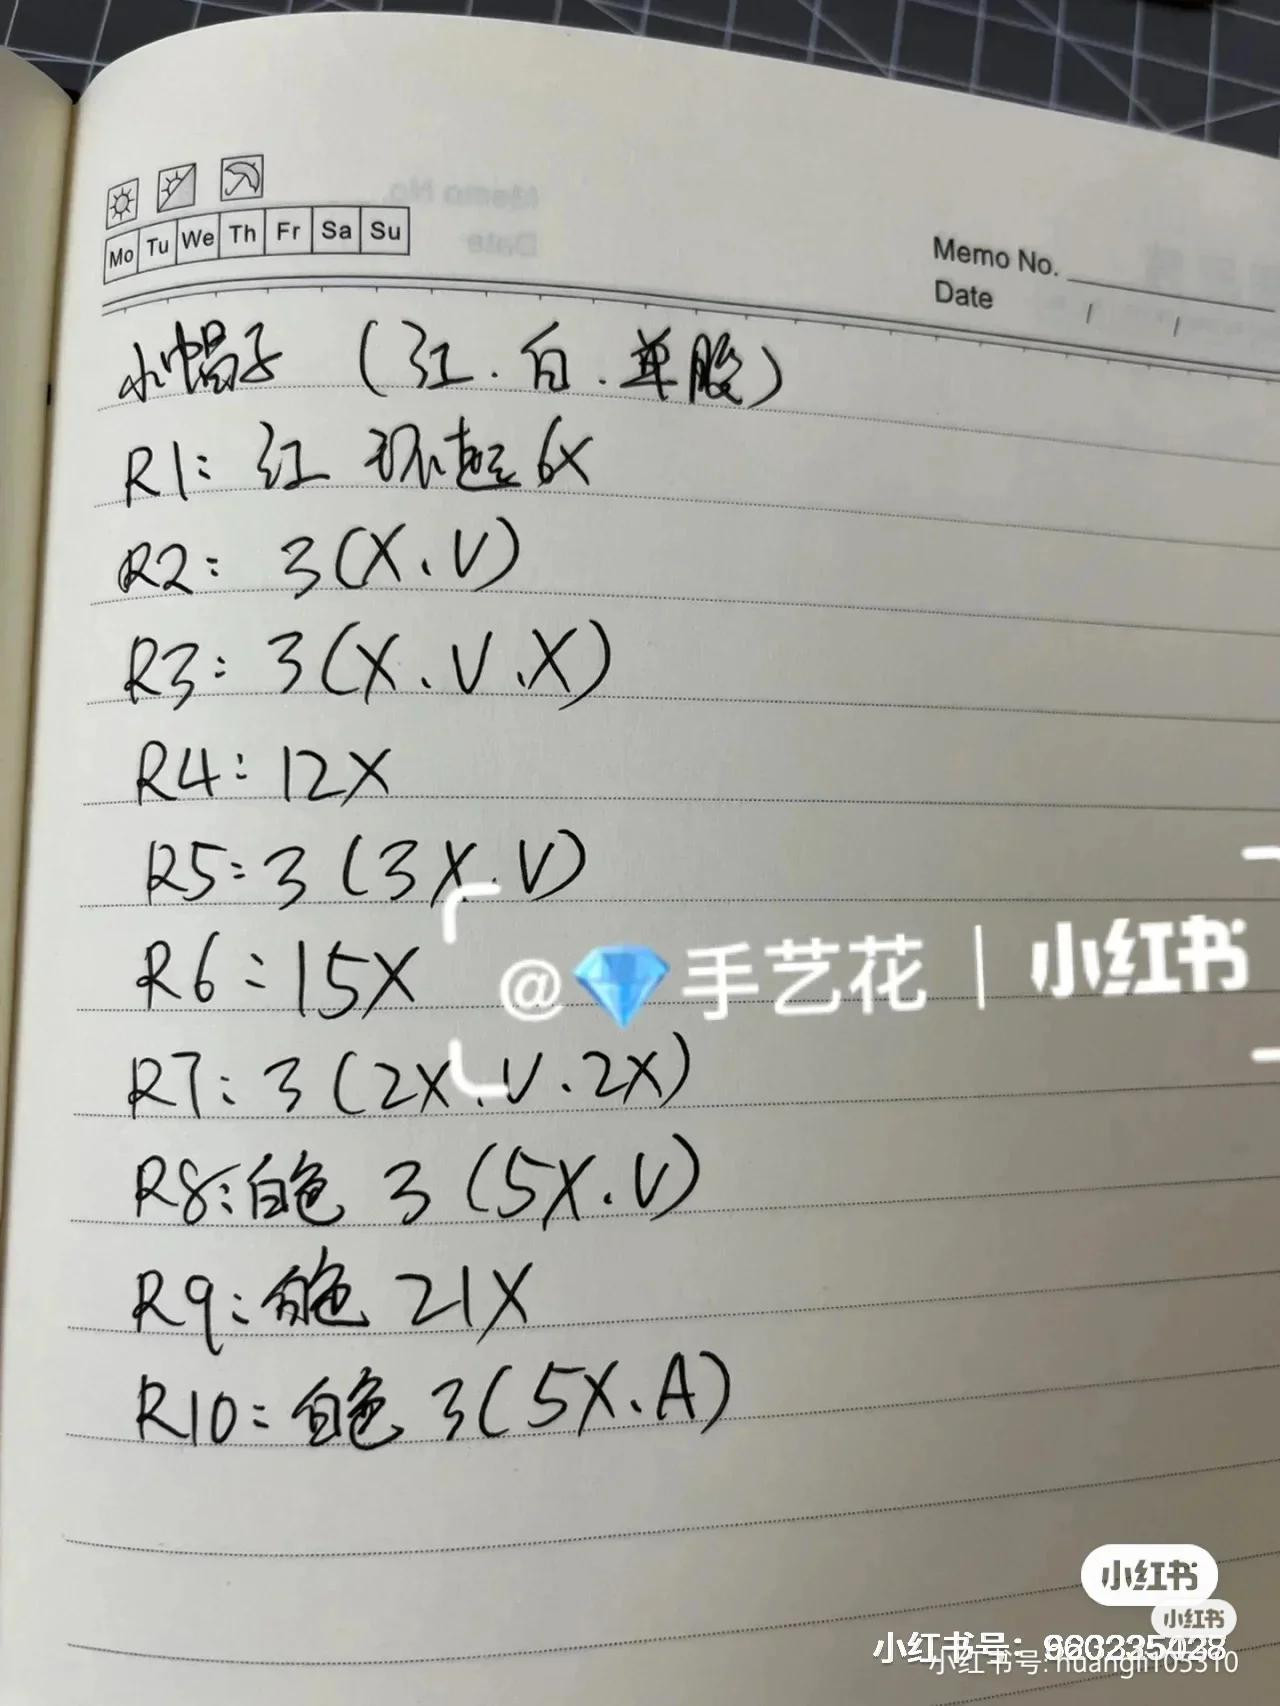 Mo Tu We Th Fr Sa Su
Memo No.
Date / /
小帽子（红.白.单股）
R1: 红 环起6X
R2: 3(X.V)
R3: 3(X.V.X)
R4: 12X
R5: 3(3X.V)
R6: 15X
@💎手艺花 | 小红书
R7: 3(2X.V.2X)
R8: 白色 3(5X.V)
R9: 白色 21X
R10: 白色 3(5X.A)
小红书
小红书
小红书号：960235028
小红书号: